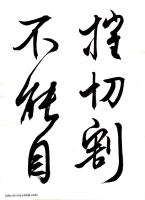 摧切割
不能自